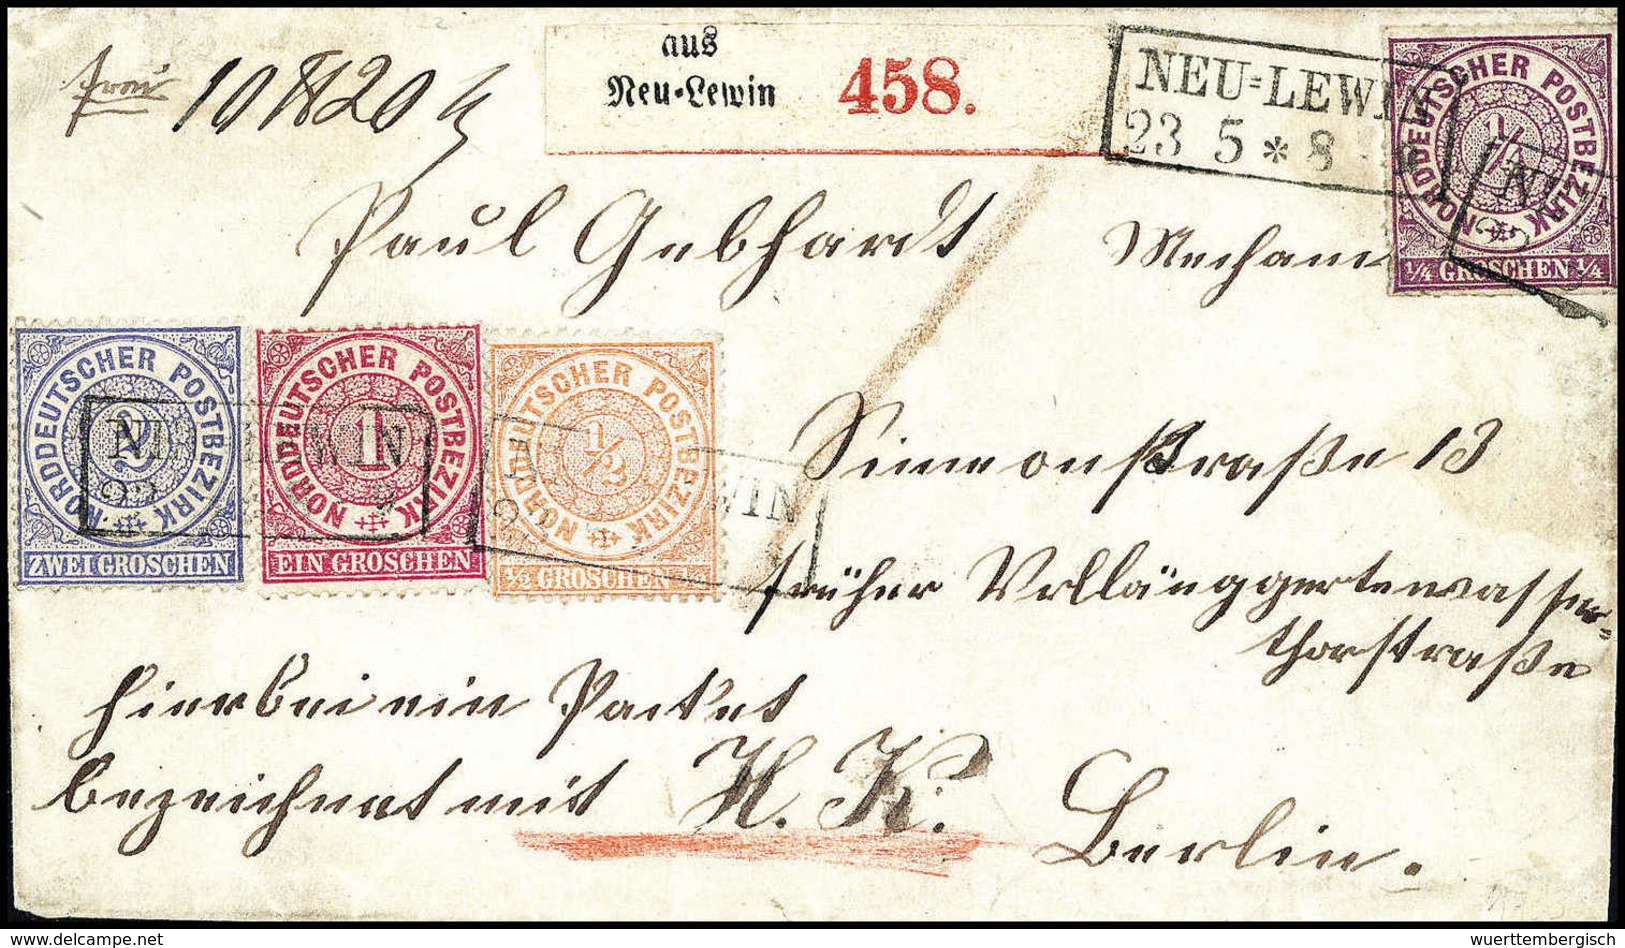 frei 10 20
aus
Neu-Lewin
458.
NEU=LEWIN
23 5 * 8
NORDDEUTSCHER POSTBEZIRK
1/4
1/4 GROSCHEN 1/4
Paul Gebhardt Mechani
NORDDEUTSCHER POSTBEZIRK
2
ZWEI GROSCHEN
NORDDEUTSCHER POSTBEZIRK
1
EIN GROSCHEN
NORDDEUTSCHER POSTBEZIRK
1/2
1/2 GROSCHEN
LEWIN
WIN
Simeonstraße 13
früher
thorstraße
Hierbei ein Packet
bezeichnet mit H. K. Berlin.
wuerttembergisch